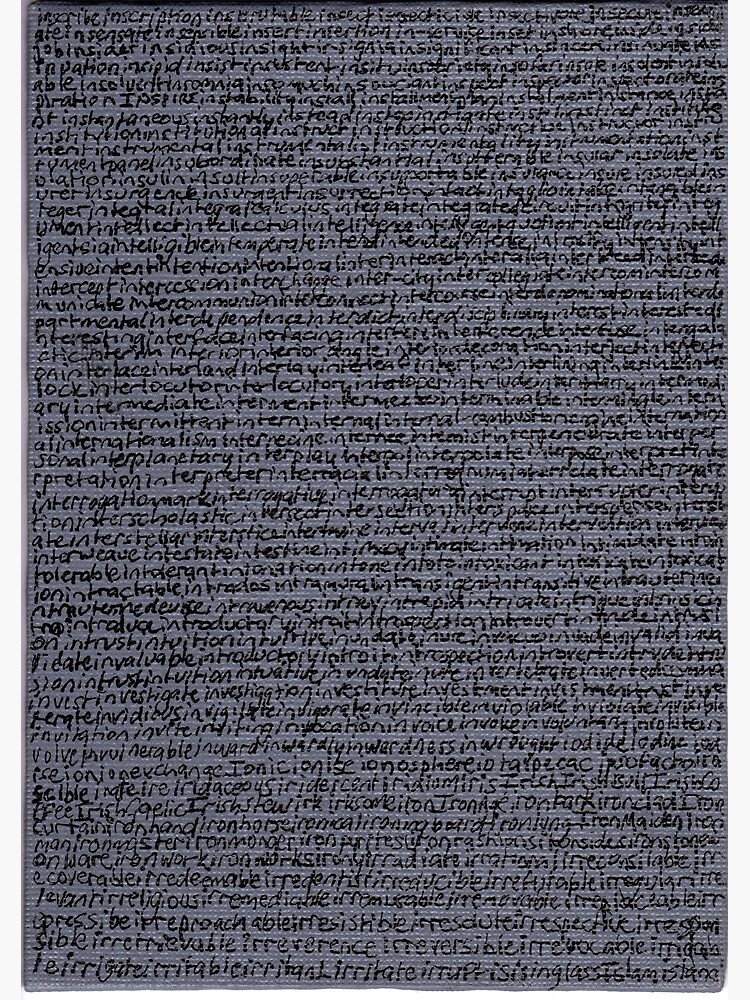 inscribe inscription inscrutable insect insecticide insectivore insecure
ate insensate insensible insert insertion in-service inset inshore inside
job insider insidious insight insignia insignificant insincere insinuate
insipid insist insistent insobriety insole insolent
able insolvent insomnia insomuch inspect inspector inspectorate ins
piration Inspire instability install installment plan installment instance
nt instantaneous instantly instead instep instigate instil instinct institute
institution institutional instruct instruction instructive instructor
ment instrumental instrumentalist instrumentality instrumentation inst
rument panel insubordinate insubstantial insufferable insular insulate ins
ulation insulin insult insuperable insupportable insurance insure insured ins
urgence insurgent insurrection intact intaglio intake intangible in
teger integral integral calculus integrate integrated circuit integrity integ
ument intellect intellectual intelligence intelligence quotient intelligent intell
igentsia intelligible intemperate intend intended intense intensify intensity int
ensive intent intention intentional inter interact inter alia interbreed intercede
intercept intercession interchange inter-city intercollegiate intercom intercom
municate intercommunion interconnect intercourse interdenominational interde
partmental interdependence interdict interdisciplinary interest interested i
nteresting interface interfacing interfere interference interfuse intergala
ctic interim interior interior angle interior decoration interject interjecti
on interlace interland interlay interleaf interline interlining interlink inter
lock interlocutor interlocutory interloper interlude intermarry intermedi
ary intermediate interment intermezzo interminable intermingle interm
ission intermittent intern internal internal combustion engine internation
al internationalism internecine internee internist interpenetrate interper
sonal interplanetary interplay Interpol interpolate interpose interpret inte
rpretation interpreter interracial interregnum interrelate interrogate
interrogation mark interrogative interrogatory interrupt interrupter intersec
tion interscholastic intersect intersection interspace intersperse interst
ate interstellar interstice intertwine interval intervene intervention interview
interweave intestate intestine intimacy intimate intimation Intimidate into in
tolerable intolerant intonation intone in toto intoxicant intoxicate intoxicat
ion intractable intrados intramural intransigent intransitive intrauterine
intrauterine device intravenous intrepid intricate intrigue intrinsic in
tro introduce introductory introit introspection introvert intrude intrus
on intrust intuition intuitive inundate inure in vacuo invade invalid inva
lidate invaluable introductory introit introspection introvert intrude intru
sion intrust intuition intuitive inundate inure invertebrate inverted commas
invest investigate investigation investiture investment investment trust inve
terate invidious invigilate invigorate invincible inviolable inviolate invisible
invitation invite inviting invocation invoice invoke involuntary involute in
volve invulnerable inward inwardly inwardness inwrought iodide Iodine iod
ise ion ion exchange Ionic ionise ionosphere iota Ipecac ipso facto ira
scible irate ire iridaceous iridescent iridium iris Irish Irish Bull Irish Co
ffee Irish Gaelic Irish stew irk irksome iron Iron Age iron bark ironclad Iron
curtain iron hand iron horse ironical ironing board iron lung Iron Maiden iron
man ironmaster ironmonger iron pyrites iron ration irons ironside iron stone
on ware ironwork iron works irony irradiate irrational irreconcilable irr
ecoverable irredeemable irredentist irreducible irrefutable irregular irre
levant irreligious irremediable irremovable irreplaceable irr
epressible irreproachable irresistible irresolute irrespective irrespon
sible irretrievable irreverence irreversible irrevocable irrigab
le irrigate irritable irritant irritate irrupt is isinglass Islam island